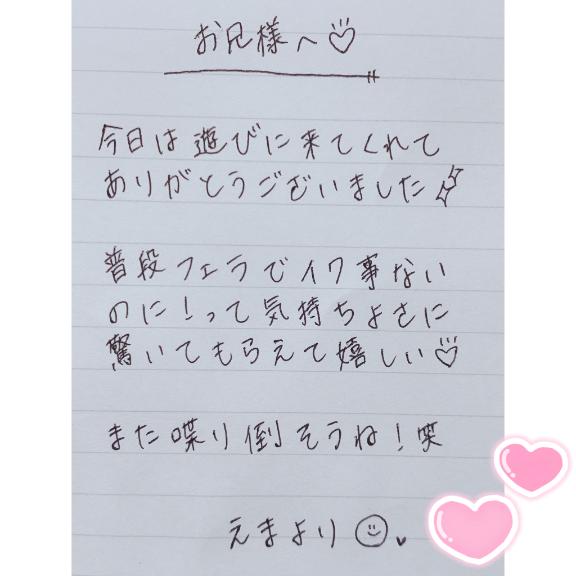 お兄様へ♡
今日は遊びに来てくれて
ありがとうございました
普段フェラでイク事ない
のに!って気持ちよさに
驚いてもらえて嬉しい♡
また喋り倒そうね!笑
えまより